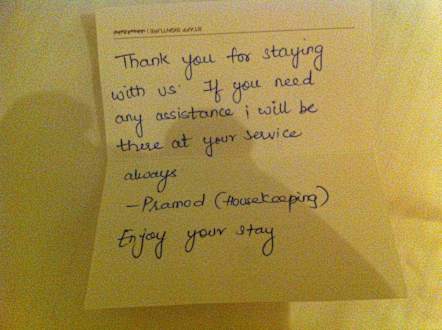 Thank you for staying
with us. If you need
any assistance i will be
there at your service
always
- Pramod (Housekeeping)
Enjoy your stay